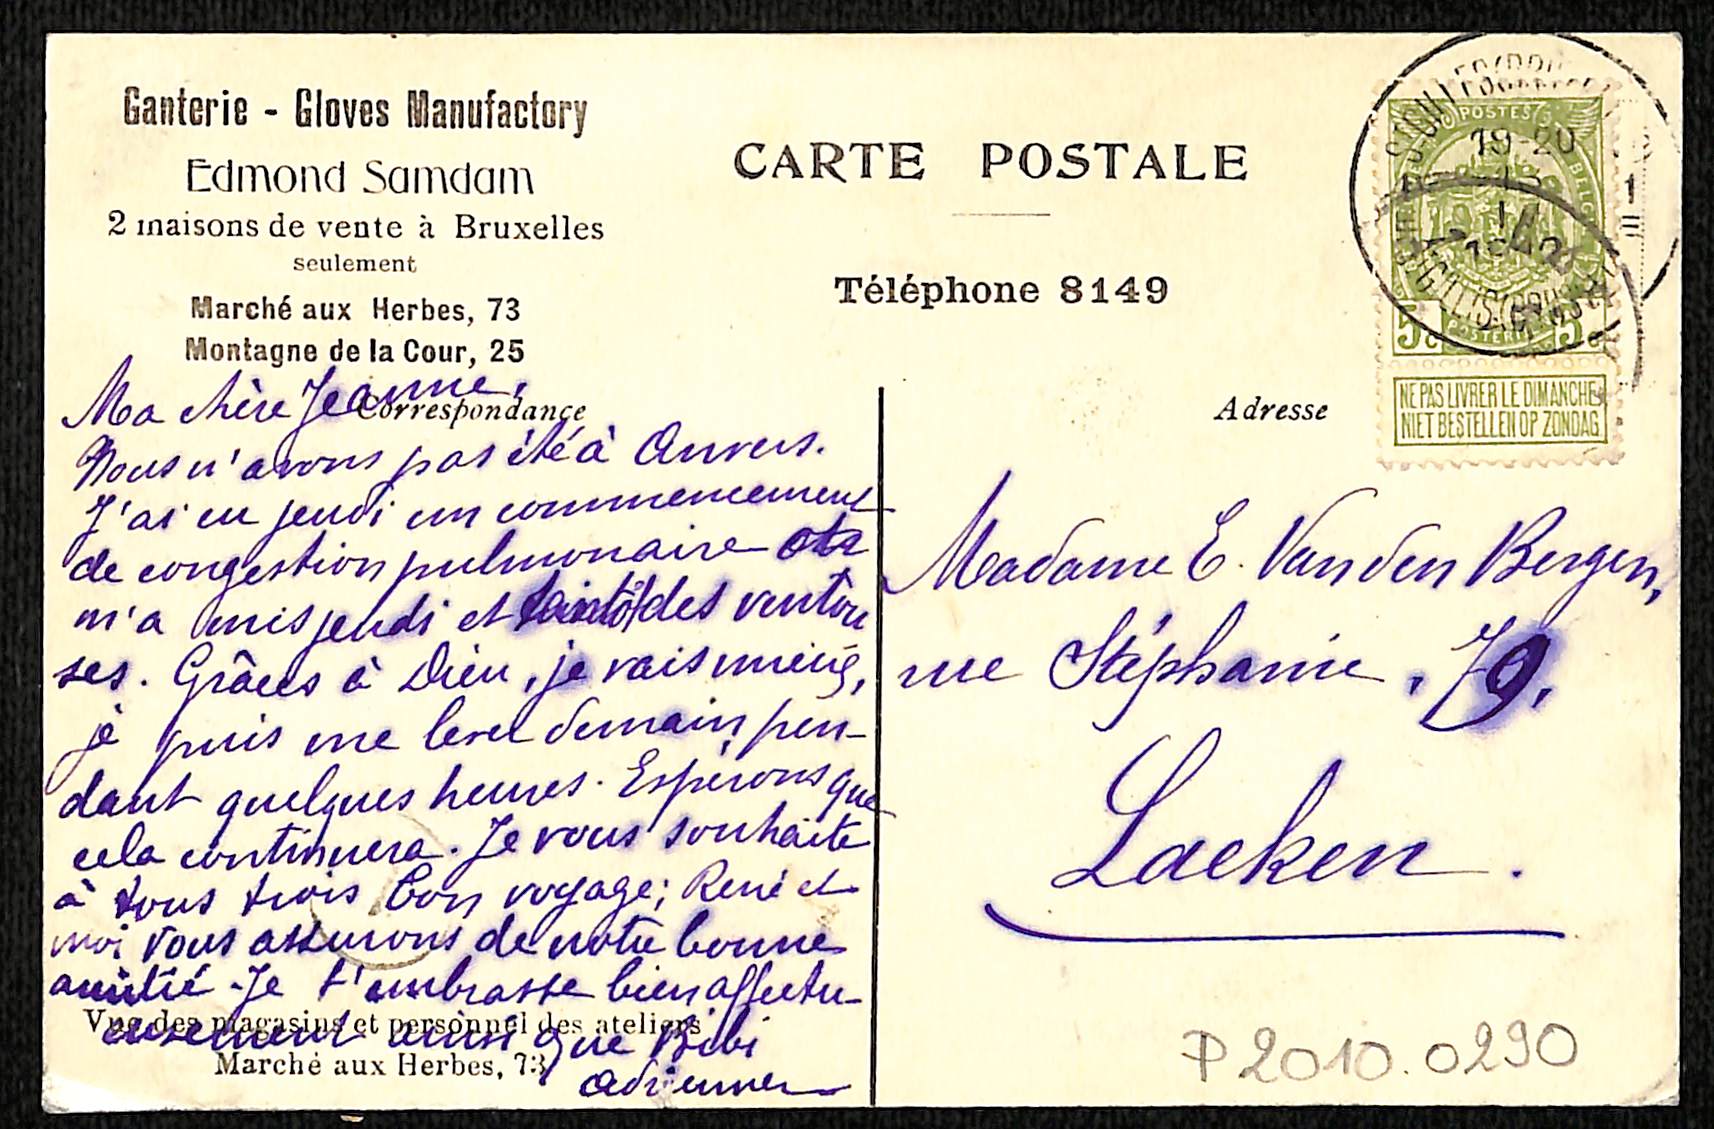 Ganterie - Gloves Manufactory
Edmond Samdam
2 maisons de vente à Bruxelles
seulement
Marché aux Herbes, 73
Montagne de la Cour, 25
CARTE POSTALE
Téléphone 8149
Correspondance
Adresse
Ma chère Jeanne,
Nous n'avons pas été à Anvers.
J'ai eu jeudi un commencement
de congestion pulmonaire on
m'a mis jeudi et tantôt des ventou
ses. Grâces à Dieu, je vais mieux,
je puis me lever demain, pen-
dant quelques heures. Espérons que
cela continuera. Je vous souhaite
à tous trois bon voyage; René et
moi vous assurons de notre bonne
amitié. Je t'embrasse bien affectu-
eusement ainsi que Bibi
Adrienne
Vue des magasins et personnel des ateliers
Marché aux Herbes, 73
Madame E. Vanden Bergen,
rue Stéphanie, 79,
Laeken.
POSTES
19-20
5c 5c
POSTERIJEN
NE PAS LIVRER LE DIMANCHE
NIET BESTELLEN OP ZONDAG
P2010.0290